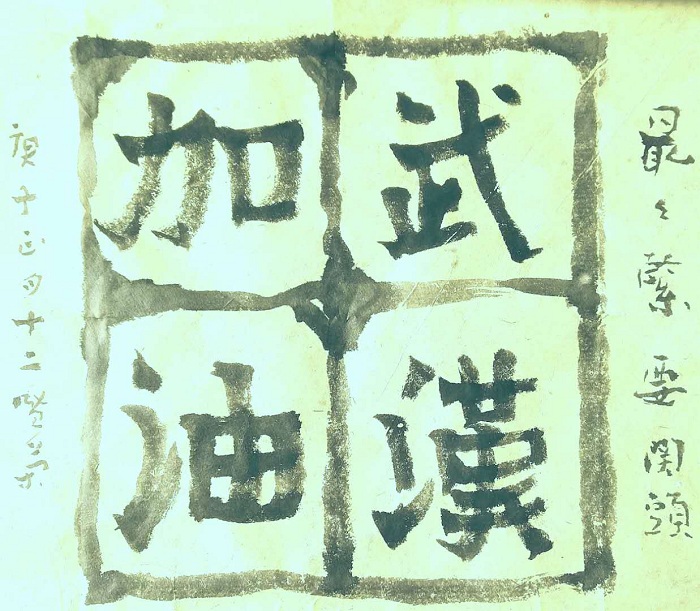 最々緊要関頭
武漢
加油
庚子正月十二